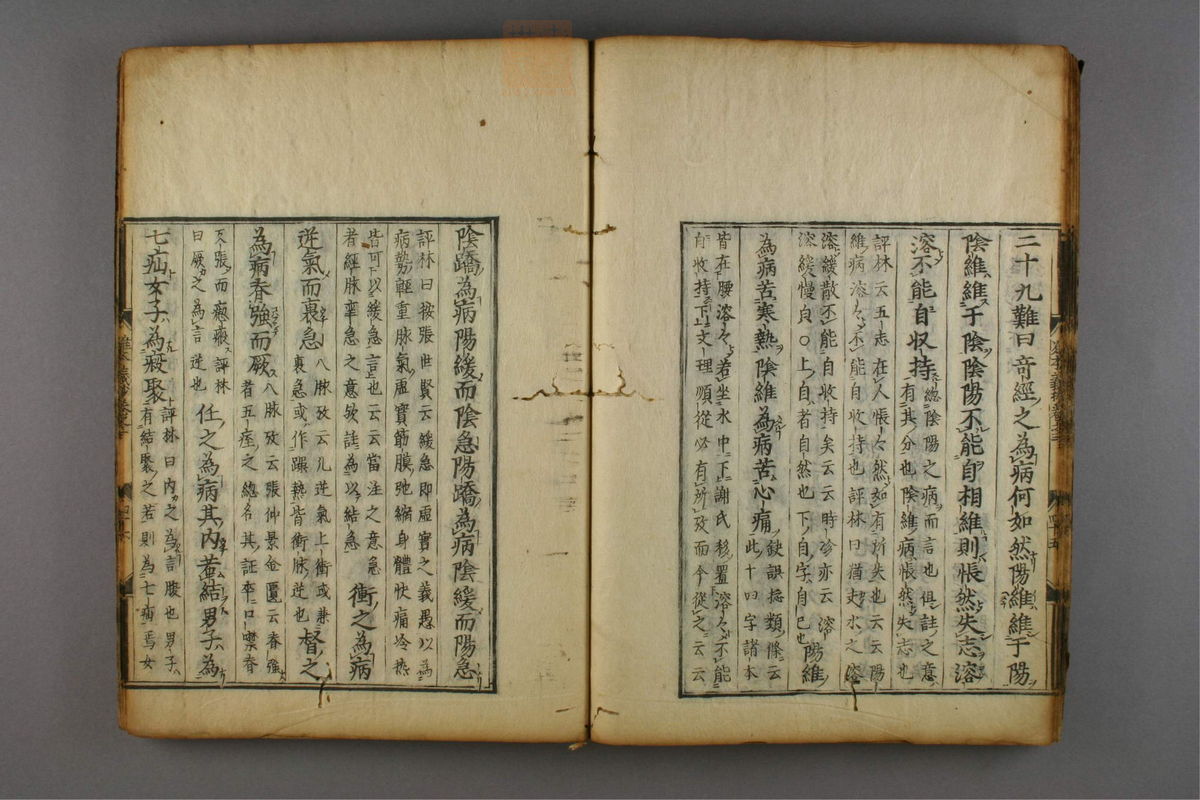 二十九難曰奇經之為病何如然陽維維于陽
陰維維于陰陰陽不能自相維則悵然失志溶
溶不能自収持 總陰陽之病而言也俱註之意
有其分也陰維病悵然失志也
評林云五志在人悵々然如有所失也云云陽
維病溶々不能自收持也評林曰猶水之溶
溶緩散不能自收持矣云云時珍亦云溶
溶緩慢貞○上自者自然也下自字自己也 陽維
為病苦寒熱陰維為病苦心痛 缺誤総類條云
此十四字諸本
皆在腰溶々若坐水中下謝氏移置溶々不能
自收持下上文理順從必有所攷而今從之云云
陰蹻為病陽緩而陰急陽蹻為病陰緩而陽急
評林曰按張世賢云緩急即虛實之義愚以為
病勢輕重脉氣虛實筋膜弛縮身體快痛冷熱
皆可以緩急言也云云當注之意急
者經脉牽急之意欤註為以結急 衝之為病
逆氣而裏急 八脉攷云凡逆氣上衝或兼
裏急或作躁熱皆衝脉逆也 督之
為病脊強而厥 八脉攷云張仲景金匱云脊強
者五痓之總名其証卒口噤脊
反張而瘛瘲評林
曰厥之為言逆也 任之為病其內苦結男子為
七疝女子為瘕聚 評林曰內之為言腹也男子
有結聚之苦則為七疝焉女